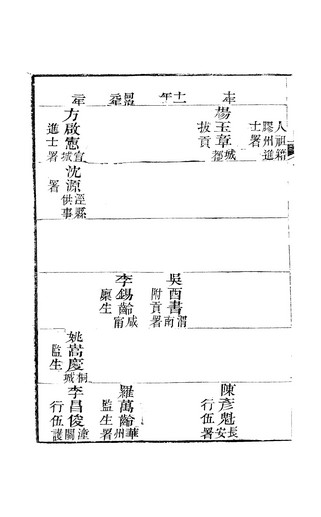 人祖籍
膠州進
士署
十年
楊玉章城
拔貢
十一年
同治
元年
二年
方啟憲宣城
進士署
沈源涇縣
供事
署
吳酉書渭南
附貢署
李錫齡咸甯
廪生
姚嵩慶桐城
監生
陳彥魁長安
行伍署
羅萬齡華州
監生署
李昌俊潼關
行伍護